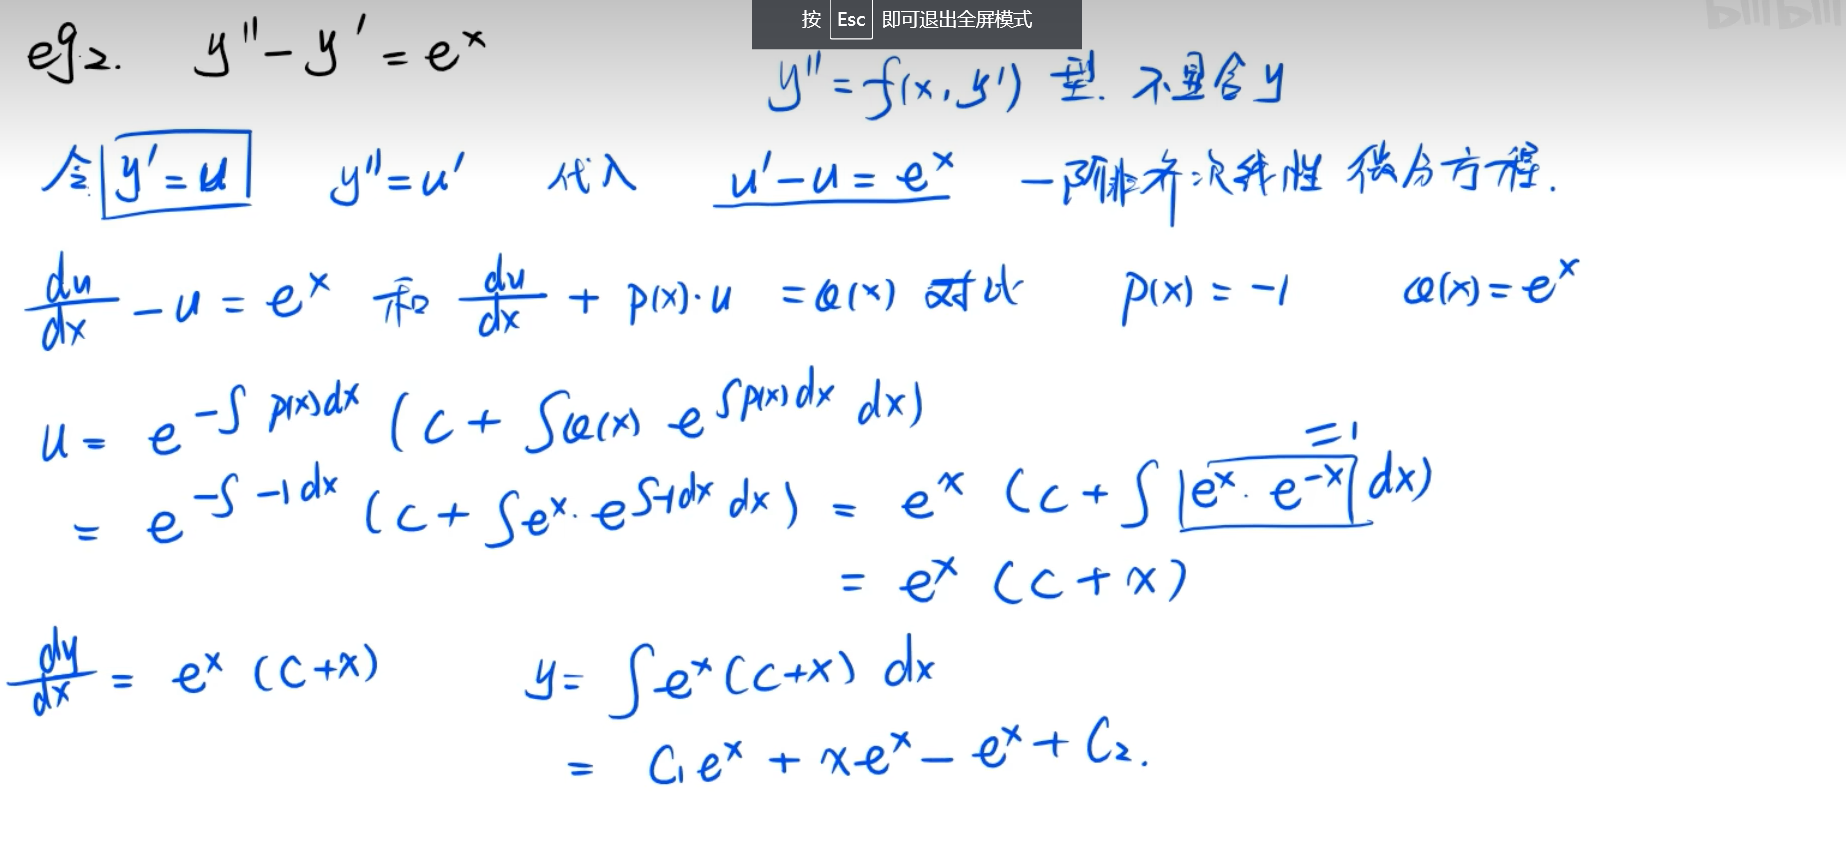 按 Esc 即可退出全屏模式
bilibili
eg2. y'' - y' = e^x
y'' = f(x, y') 型. 不显含 y
令 y' = u y'' = u' 代入 u' - u = e^x 一阶非齐次线性微分方程.
du/dx - u = e^x 和 du/dx + p(x)·u = Q(x) 对比 p(x) = -1 Q(x) = e^x
u = e^{-∫p(x)dx} (c + ∫Q(x) e^{∫p(x)dx} dx)
= e^{-∫-1dx} (c + ∫e^x · e^{∫-1dx} dx) = e^x (c + ∫ e^x · e^{-x} dx) =1
= e^x (c + x)
dy/dx = e^x (c + x) y = ∫e^x (c + x) dx
= C₁e^x + xe^x - e^x + C₂.